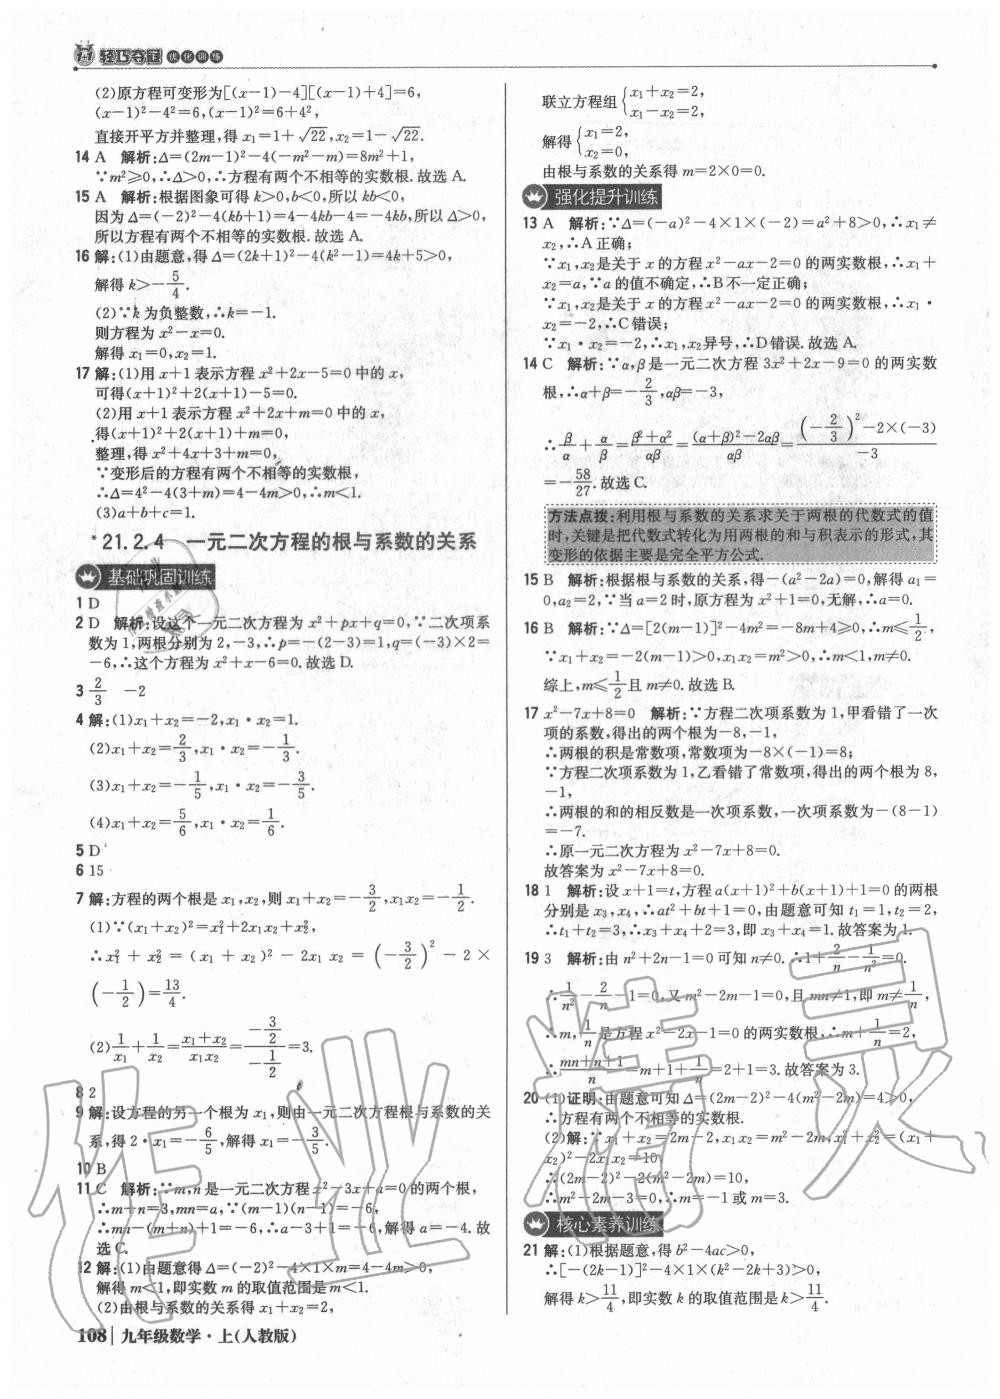 1+1 轻巧夺冠 优化训练
(2)原方程可变形为[(x-1)-4][(x-1)+4]=6,
(x-1)²-4²=6,(x-1)²=6+4²,
直接开平方并整理,得 x₁=1+√22,x₂=1-√22.
14 A 解析:Δ=(2m-1)²-4(-m²-m)=8m²+1,
∵m²≥0,∴Δ>0,∴方程有两个不相等的实数根.故选 A.
15 A 解析:根据图象可得 k>0,b<0,所以 kb<0,
因为 Δ=(-2)²-4(kb+1)=4-4kb-4=-4kb,所以 Δ>0,
所以方程有两个不相等的实数根.故选 A.
16 解:(1)由题意,得 Δ=(2k+1)²-4(k²-1)=4k+5>0,
解得 k>-5/4.
(2)∵k 为负整数,∴k=-1.
则方程为 x²-x=0.
解得 x₁=0,x₂=1.
17 解:(1)用 x+1 表示方程 x²+2x-5=0 中的 x,
可得(x+1)²+2(x+1)-5=0.
(2)用 x+1 表示方程 x²+2x+m=0 中的 x,
得(x+1)²+2(x+1)+m=0,
整理,得 x²+4x+3+m=0,
∵变形后的方程有两个不相等的实数根,
∴Δ=4²-4(3+m)=4-4m>0,∴m<1.
(3)a+b+c=1.
*21.2.4 一元二次方程的根与系数的关系
基础巩固训练
1 D
2 D 解析:设这个一元二次方程为 x²+px+q=0,∵二次项系
数为 1,两根分别为 2,-3,∴p=-(2-3)=1,q=(-3)×2=
-6,∴这个方程为 x²+x-6=0.故选 D.
3 2/3 -2
4 解:(1)x₁+x₂=-2,x₁·x₂=1.
(2)x₁+x₂=2/3,x₁·x₂=-1/3.
(3)x₁+x₂=-1/5,x₁·x₂=-3/5.
(4)x₁+x₂=5/6,x₁·x₂=1/6.
5 D
6 15
7 解:方程的两个根是 x₁,x₂,则 x₁+x₂=-3/2,x₁x₂=-1/2.
(1)∵(x₁+x₂)²=x₁²+2x₁x₂+x₂²,
∴x₁²+x₂²=(x₁+x₂)²-2x₁x₂=(-3/2)²-2×
(-1/2)=13/4.
(2)1/x₁+1/x₂=(x₁+x₂)/(x₁x₂)=(-3/2)/(-1/2)=3.
8 2
9 解:设方程的另一个根为 x₁,则由一元二次方程根与系数的关
系,得 2·x₁=-6/5,解得 x₁=-3/5.
10 B
11 C 解析:∵m,n 是一元二次方程 x²-3x+a=0 的两个根,
∴m+n=3,mn=a,∵(m-1)(n-1)=-6,
∴mn-(m+n)+1=-6,∴a-3+1=-6,解得 a=-4.故
选 C.
12 解:(1)由题意得 Δ=(-2)²-4×1×m=4-4m>0,
解得 m<1,即实数 m 的取值范围是 m<1.
(2)由根与系数的关系得 x₁+x₂=2,
108 九年级数学·上(人教版)
联立方程组{x₁+x₂=2,
x₁-x₂=2,
解得{x₁=2,
x₂=0,
由根与系数的关系得 m=2×0=0.
强化提升训练
13 A 解析:∵Δ=(-a)²-4×1×(-2)=a²+8>0,∴x₁≠
x₂,∴A 正确;
∵x₁,x₂是关于 x 的方程 x²-ax-2=0 的两实数根,∴x₁+
x₂=a,∵a 的值不确定,∴B 不一定正确;
∵x₁,x₂是关于 x 的方程 x²-ax-2=0 的两实数根,∴x₁·
x₂=-2,∴C 错误;
∵x₁·x₂=-2,∴x₁,x₂异号,∴D 错误.故选 A.
14 C 解析:∵α,β是一元二次方程 3x²+2x-9=0 的两实数
根,∴α+β=-2/3,αβ=-3,
∴β/α+α/β=(β²+α²)/(αβ)=((α+β)²-2αβ)/(αβ)=((-2/3)²-2×(-3))/(-3)
=-58/27.故选 C.
方法点拨:利用根与系数的关系求关于两根的代数式的值
时,关键是把代数式转化为用两根的和与积表示的形式,其
变形的依据主要是完全平方公式.
15 B 解析:根据根与系数的关系,得-(a²-2a)=0,解得 a₁=
0,a₂=2,∵当 a=2 时,原方程为 x²+1=0,无解,∴a=0.
16 B 解析:∵Δ=[2(m-1)]²-4m²=-8m+4≥0,∴m≤1/2,
∵x₁+x₂=-2(m-1)>0,x₁x₂=m²>0,∴m<1,m≠0.
综上,m≤1/2且 m≠0.故选 B.
17 x²-7x+8=0 解析:∵方程二次项系数为 1,甲看错了一次
项的系数,得出的两个根为-8,-1,
∴两根的积是常数项,常数项为-8×(-1)=8;
∵方程二次项系数为 1,乙看错了常数项,得出的两个根为 8,
-1,
∴两根的和的相反数是一次项系数,一次项系数为-(8-1)
=-7.
∴原一元二次方程为 x²-7x+8=0.
故答案为 x²-7x+8=0.
18 1 解析:设 x+1=t,方程 a(x+1)²+b(x+1)+1=0 的两根
分别是 x₃,x₄,∴at²+bt+1=0,由题意可知 t₁=1,t₂=2,
∴t₁+t₂=3,∴x₃+x₄+2=3,即 x₃+x₄=1.故答案为 1.
19 3 解析:由 n²+2n-1=0 可知 n≠0.∴1+2/n-1/n²=0.
∴1/n²-2/n-1=0,又 m²-2m-1=0,且 mn≠1,即 m≠1/n,
∴m,1/n是方程 x²-2x-1=0 的两实数根,∴m+1/n=2,
∴(mn+n+1)/n=m+1+1/n=2+1=3.故答案为 3.
20 (1)证明:由题意可知 Δ=(2m-2)²-4(m²-2m)=4>0,
∴方程有两个不相等的实数根.
(2)解:∵x₁+x₂=2m-2,x₁x₂=m²-2m,x₁²+x₂²=(x₁+
x₂)²-2x₁x₂=10,
∴(2m-2)²-2(m²-2m)=10,
∴m²-2m-3=0,∴m=-1 或 m=3.
核心素养训练
21 解:(1)根据题意,得 b²-4ac>0,
∴[-(2k-1)]²-4×1×(k²-2k+3)>0,
解得 k>11/4,即实数 k 的取值范围是 k>11/4.
作业精灵